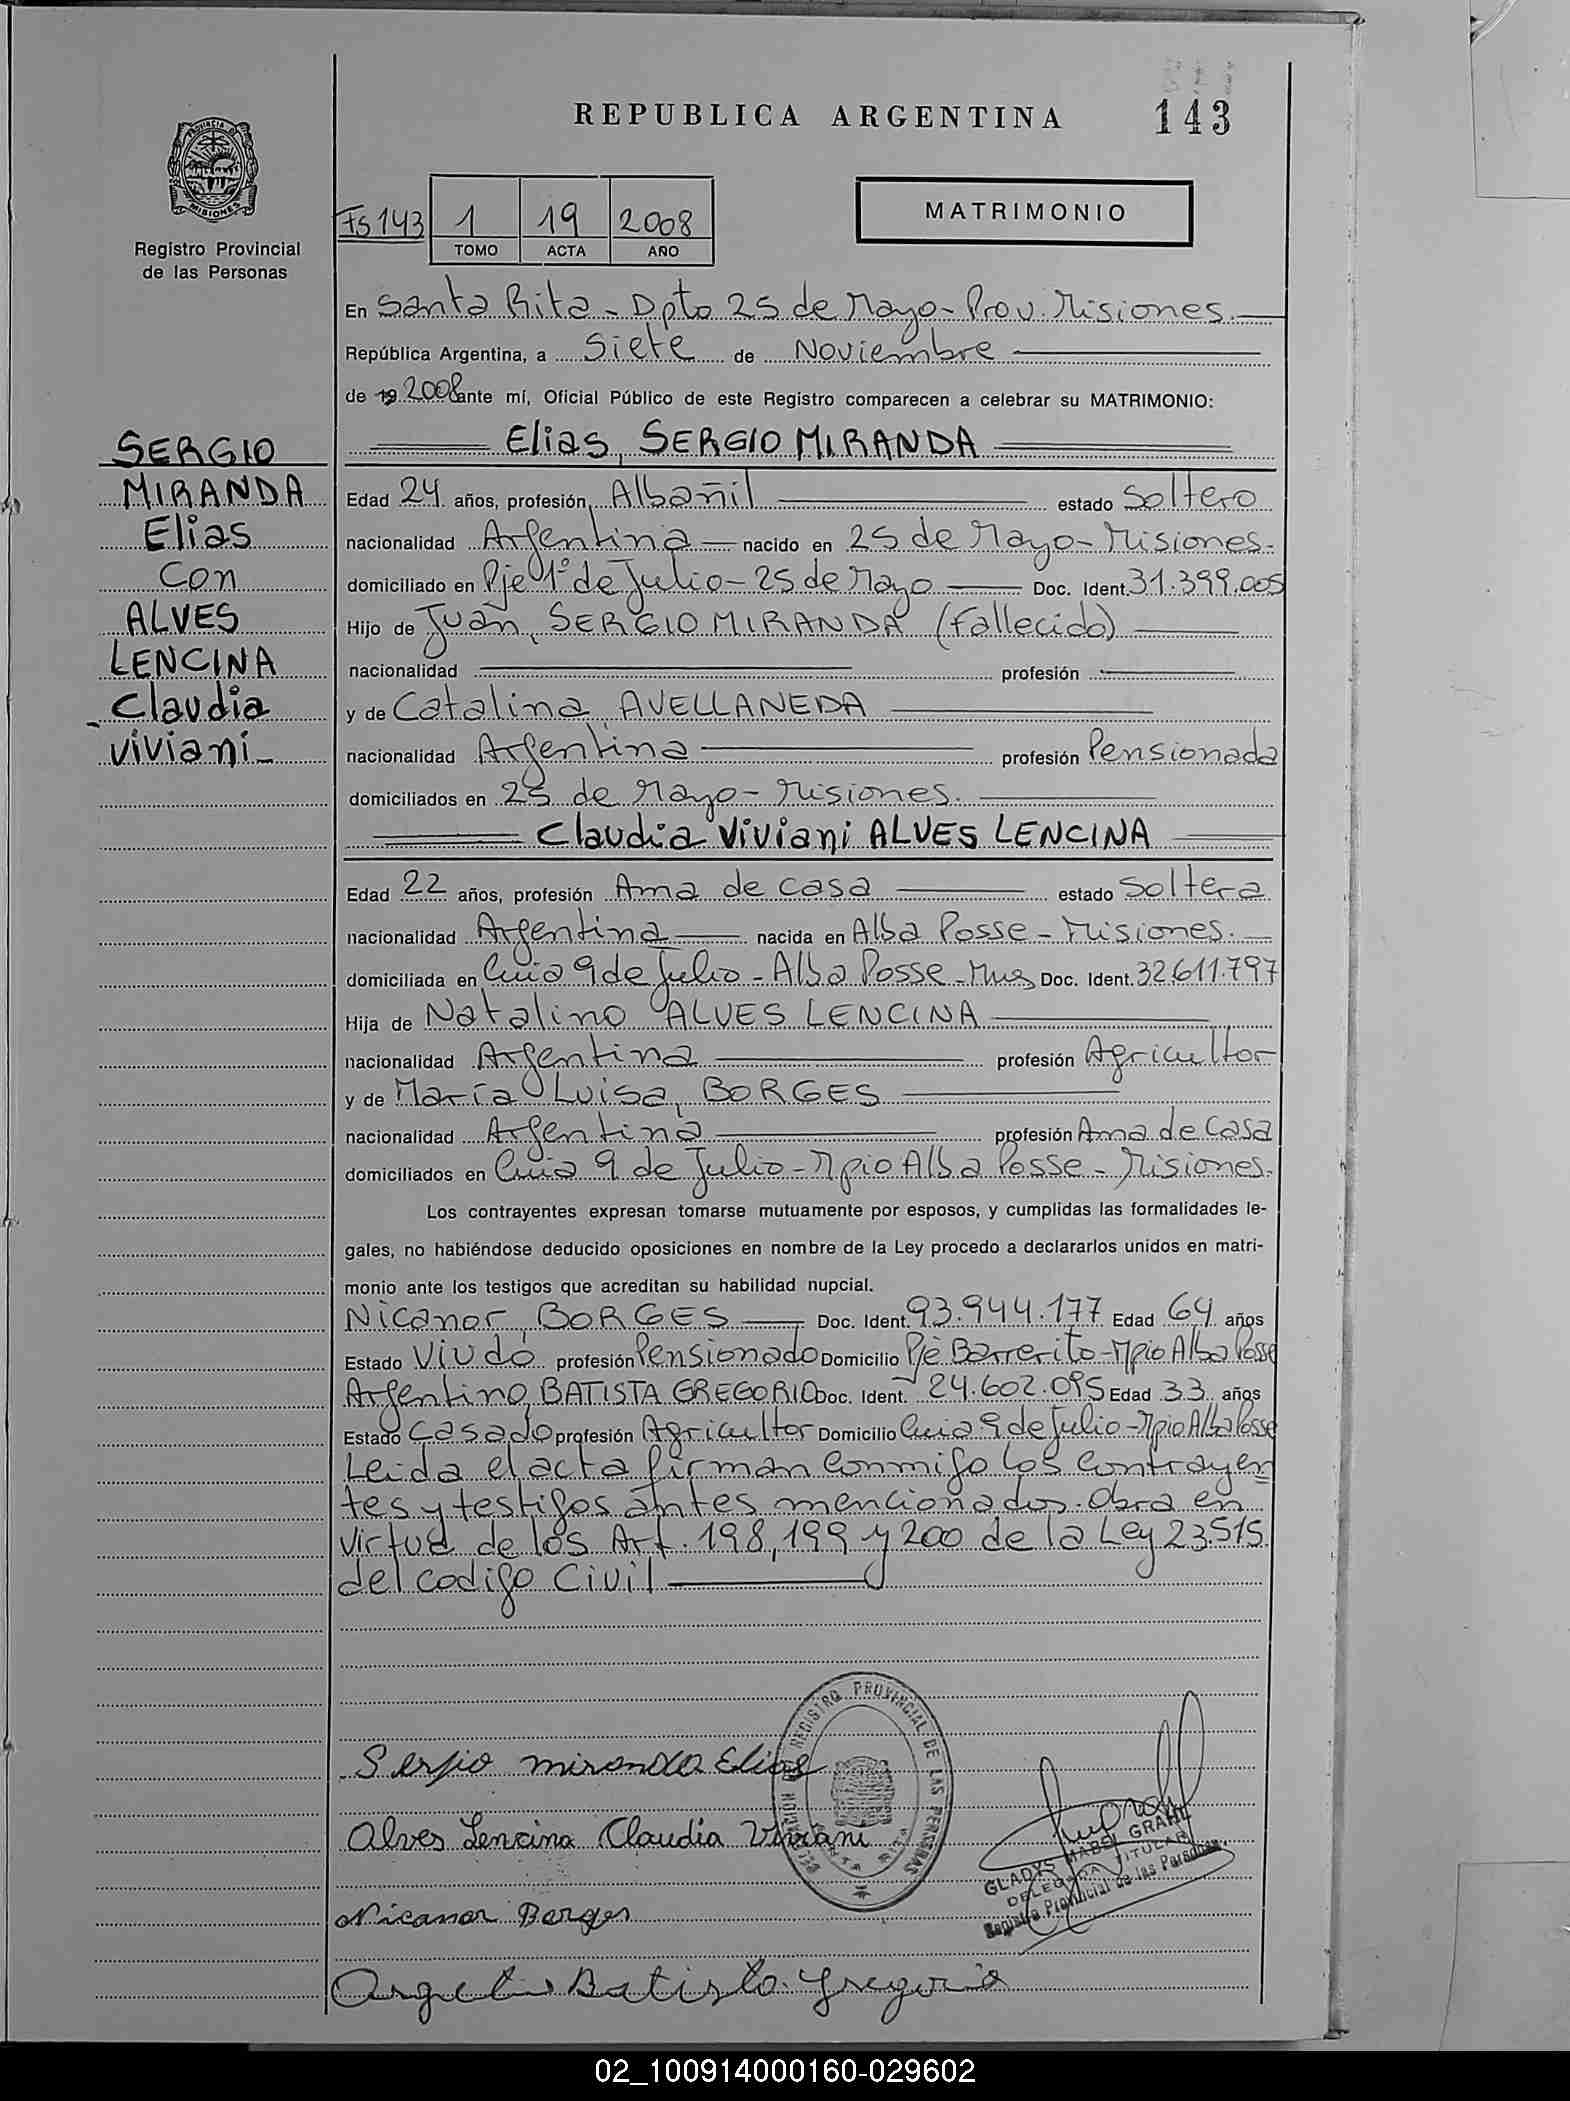 REPUBLICA ARGENTINA 143
PROVINCIA DE
MISIONES
Registro Provincial
de las Personas
Fs 143 1 19 2008
TOMO ACTA AÑO
MATRIMONIO
SERGIO
MIRANDA
Elias
Con
ALVES
LENCINA
Claudia
Viviani
En Santa Rita - Dpto 25 de Mayo - Prov. Misiones.
República Argentina, a Siete de Noviembre
de 19 2008 ante mí, Oficial Público de este Registro comparecen a celebrar su MATRIMONIO:
Elias, SERGIO MIRANDA
Edad 24 años, profesión Albañil estado Soltero
nacionalidad Argentina nacido en 25 de Mayo - Misiones.
domiciliado en Pje 1° de Julio - 25 de Mayo Doc. Ident. 31.399.005
Hijo de Juan, SERGIO MIRANDA (Fallecido)
nacionalidad profesión
y de Catalina, AVELLANEDA
nacionalidad Argentina profesión Pensionada
domiciliados en 25 de Mayo - Misiones.
Claudia Viviani ALVES LENCINA
Edad 22 años, profesión Ama de casa estado Soltera
nacionalidad Argentina nacida en Alba Posse - Misiones.
domiciliada en Cnia 9 de Julio - Alba Posse - Mnes Doc. Ident. 32.611.797
Hija de Natalino ALVES LENCINA
nacionalidad Argentina profesión Agricultor
y de María Luisa, BORGES
nacionalidad Argentina profesión Ama de Casa
domiciliados en Cnia 9 de Julio - Mpio Alba Posse - Misiones.
Los contrayentes expresan tomarse mutuamente por esposos, y cumplidas las formalidades le-
gales, no habiéndose deducido oposiciones en nombre de la Ley procedo a declararlos unidos en matri-
monio ante los testigos que acreditan su habilidad nupcial.
Nicanor, BORGES Doc. Ident. 93.944.177 Edad 64 años
Estado Viudo profesión Pensionado Domicilio Pje Barrerito - Mpio Alba Posse
Argentino, BATISTA GREGORIO Doc. Ident. 24.602.095 Edad 33 años
Estado Casado profesión Agricultor Domicilio Cnia 9 de Julio - Mpio Alba Posse
Leida el acta firman conmigo los contrayen
tes y testigos antes mencionados. Obra en
virtud de los Art. 198, 199 y 200 de la Ley 23.515
del codigo Civil
Sergio miranda Elias
Alves Lencina Claudia Viviani
Nicanor Borges
Batista Gregorio
DELEGACION DE REGISTRO PROVINCIAL DE LAS PERSONAS
GLADYS MABEL GRAHL
DELEGADA TITULAR
Registro Provincial de las Personas
02_100914000160-029602